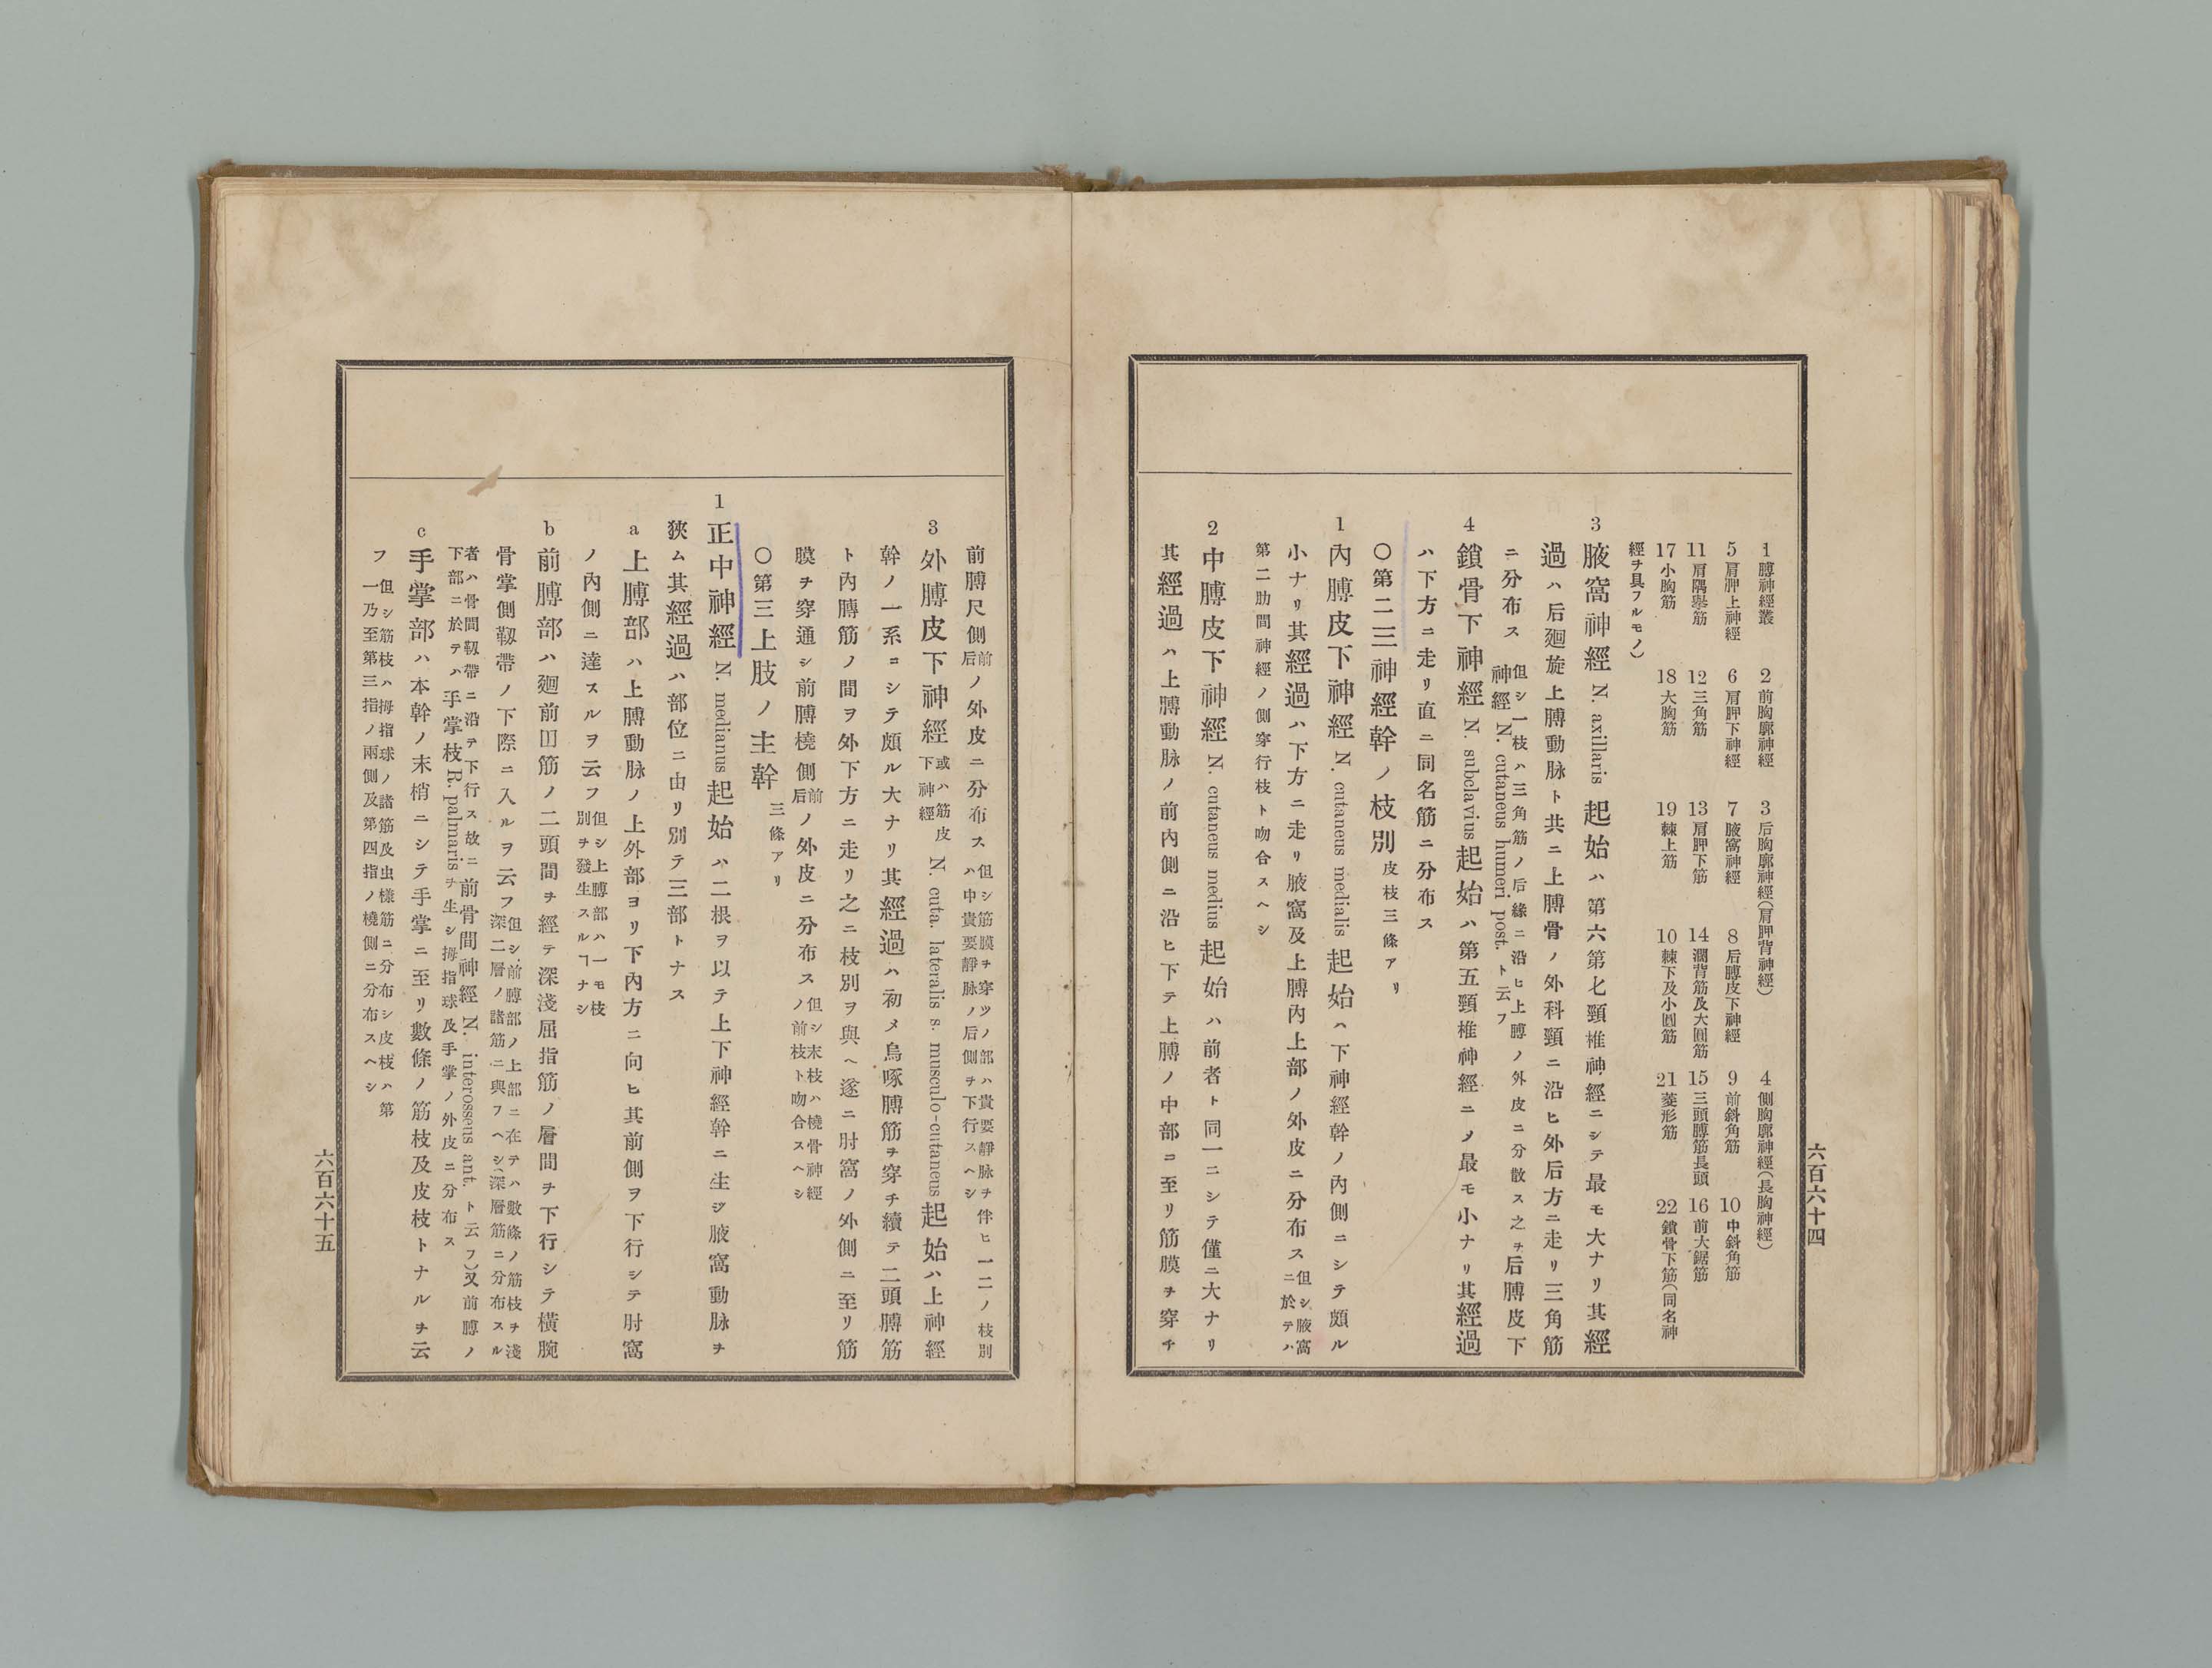 1 膊神經叢 2 前胸廓神經 3 后胸廓神經(肩胛背神經) 4 側胸廓神經(長胸神經)
5 肩胛上神經 6 肩胛下神經 7 腋窩神經 8 后膊皮下神經 9 前斜角筋 10 中斜角筋
11 肩隅擧筋 12 三角筋 13 肩胛下筋 14 濶背筋及大圓筋 15 三頭膊筋長頭 16 前大鋸筋
17 小胸筋 18 大胸筋 19 棘上筋 10 棘下及小圓筋 21 菱形筋 22 鎖骨下筋(同名神
經ヲ具フルモノ)
3 腋窩神經 N. axillaris 起始ハ第六第七頸椎神經ニシテ最モ大ナリ其經
過ハ后廻旋上膊動脉ト共ニ上膊骨ノ外科頸ニ沿ヒ外后方ニ走リ三角筋
ニ分布ス 但シ一枝ハ三角筋ノ后緣ニ沿ヒ上膊ノ外皮ニ分散ス之ヲ后膊皮下
神經 N. cutaneus humeri post. ト云フ
4 鎖骨下神經 N. subclavius 起始ハ第五頸椎神經ニメ最モ小ナリ其經過
ハ下方ニ走リ直ニ同名筋ニ分布ス
〇第二三神經幹ノ枝別 皮枝三條アリ
1 內膊皮下神經 N. cutaneus medialis 起始ハ下神經幹ノ內側ニシテ頗ル
小ナリ其經過ハ下方ニ走リ腋窩及上膊內上部ノ外皮ニ分布ス 但シ腋窩
ニ於テハ
第二肋間神經ノ側穿行枝ト吻合スヘシ
2 中膊皮下神經 N. cutaneus medius 起始ハ前者ト同一ニシテ僅ニ大ナリ
其經過ハ上膊動脉ノ前內側ニ沿ヒ下テ上膊ノ中部コ至リ筋膜ヲ穿チ
六百六十四
前膊尺側前
后ノ外皮ニ分布ス 但シ筋膜ヲ穿ツノ部ハ貴要靜脉ヲ伴ヒ一二ノ枝別
ハ中貴要靜脉ノ后側ヲ下行スヘシ
3 外膊皮下神經 或ハ筋皮
下神經 N. cuta. lateralis s. musculo-cutaneus 起始ハ上神經
幹ノ一系コシテ頗ル大ナリ其經過ハ初メ烏啄膊筋ヲ穿チ續テ二頭膊筋
ト內膊筋ノ間ヲ外下方ニ走リ之ニ枝別ヲ與ヘ遂ニ肘窩ノ外側ニ至リ筋
膜ヲ穿通シ前膊橈側前
后ノ外皮ニ分布ス 但シ末枝ハ橈骨神經
ノ前枝ト吻合スヘシ
〇第三上肢ノ主幹 三條アリ
1 正中神經 N. medianus 起始ハ二根ヲ以テ上下神經幹ニ生ジ腋窩動脉ヲ
狹ム其經過ハ部位ニ由リ別テ三部トナス
a 上膊部ハ上膊動脉ノ上外部ヨリ下內方ニ向ヒ其前側ヲ下行シテ肘窩
ノ內側ニ達スルヲ云フ 但シ上膊部ハ一モ枝
別ヲ發生スルヿナシ
b 前膊部ハ廻前囙筋ノ二頭間ヲ經テ深淺屈指筋ノ層間ヲ下行シテ橫腕
骨掌側靱帶ノ下際ニ入ルヲ云フ 但シ前膊部ノ上部ニ在テハ數條ノ筋枝ヲ淺
深二層ノ諸筋ニ與フヘシ(深層筋ニ分布スル
者ハ骨間靱帶ニ沿テ下行ス故ニ前骨間神經 N. interosseus ant. ト云フ)又前膊ノ
下部ニ於テハ手掌枝 R. palmaris ヲ生シ拇指球及手掌ノ外皮ニ分布ス
c 手掌部ハ本幹ノ末梢ニシテ手掌ニ至リ數條ノ筋枝及皮枝トナルヲ云
フ 但シ筋枝ハ拇指球ノ諸筋及虫樣筋ニ分布シ皮枝ハ第
一乃至第三指ノ兩側及第四指ノ橈側ニ分布スヘシ
六百六十五